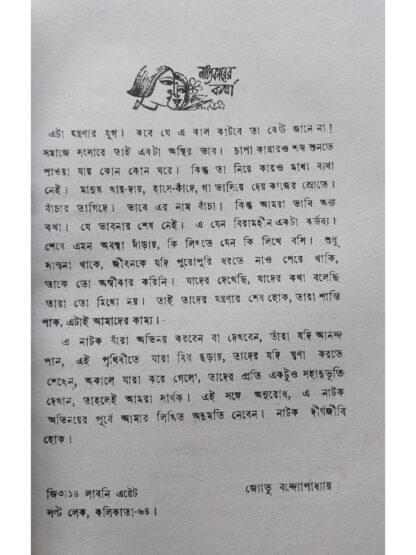 নাট্যকারের
কথা
এটা যন্ত্রণার যুগ। কবে যে এ কাল কাটবে তা কেউ জানে না!
সমাজে সংসারে তাই একটা অস্থির ভাব। চাপা কান্নারও শব্দ শুনতে
পাওয়া যায় কোন কোন ঘরে। কিন্তু তা নিয়ে কারও মাথা ব্যথা
নেই। মানুষ খায়-দায়, হাসে-কাঁদে, গা ভাসিয়ে দেয় কাজের স্রোতে।
বাঁচার তাগিদে। ভাবে এর নাম বাঁচা। কিন্তু আমরা ভাবি অন্য
কথা। যে ভাবনার শেষ নেই। এ যেন বিরামহীন একটা কর্তব্য।
শেষে এমন অবস্থা দাঁড়ায়, কি লিখতে যেন কি লিখে বসি। শুধু
সান্ত্বনা থাকে, জীবনকে যদি পুরোপুরি ধরতে নাও পেরে থাকি,
তাকে তো অস্বীকার করিনি। যাদের দেখেছি, যাদের কথা বলেছি
তারা তো মিথ্যে নয়। তাই তাদের যন্ত্রণার শেষ হোক, তারা শান্তি
পাক, এটাই আমাদের কাম্য।
এ নাটক যাঁরা অভিনয় করবেন বা দেখবেন, তাঁরা যদি আনন্দ
পান, এই পৃথিবীতে যারা বিষ ছড়ায়, তাদের যদি ঘৃণা করতে
শেখেন, অকালে যারা ঝরে গেলো, তাদের প্রতি একটুও সহানুভূতি
দেখান, তাহলেই আমরা সার্থক। এই সঙ্গে অনুরোধ, এ নাটক
অভিনয়ের পূর্বে আমার লিখিত অনুমতি নেবেন। নাটক দীর্ঘজীবি
হোক।
জি৩/১৪ লাবনি এষ্টেট জ্যোতু বন্দ্যোপাধ্যায়
সল্ট লেক, কলিকাতা-৬৪।